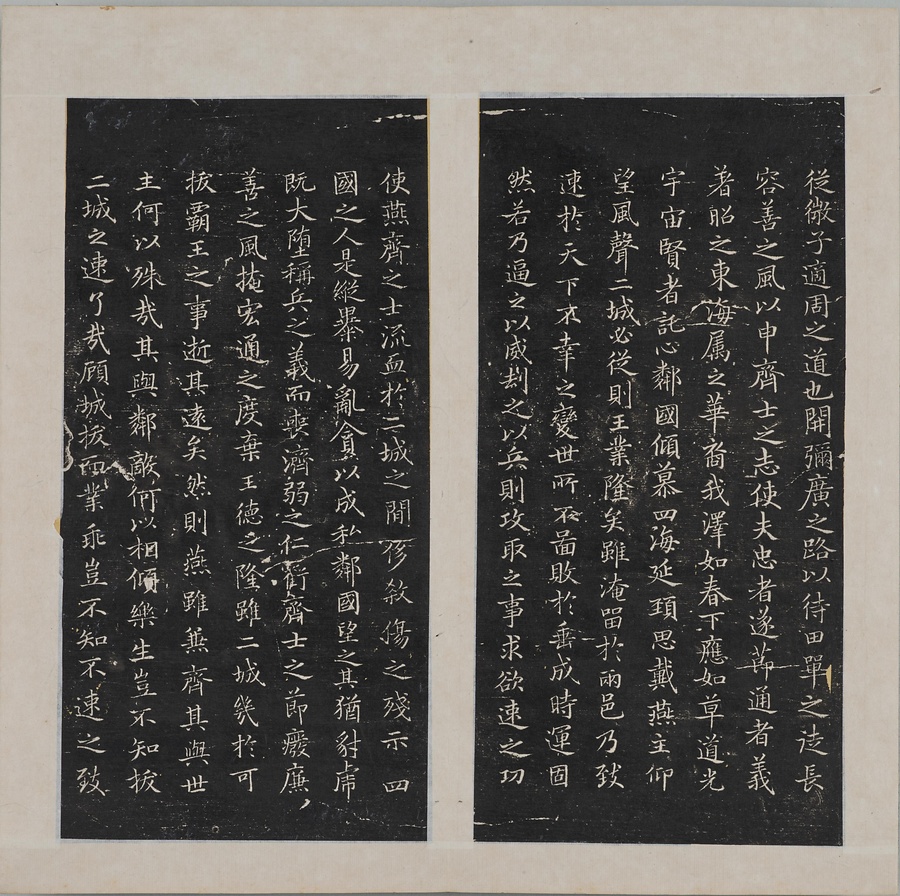 從微子適周之道也開彌廣之路以待田單之徒長
容善之風以申齊士之志使夫忠者遂節通者義
著昭之東海屬之華裔我澤如春下應如草道光
宇宙賢者託心鄰國傾慕四海延頸思戴燕主仰
望風聲二城必從則王業隆矣雖淹留於兩邑乃致
速於天下不幸之變世所不啚敗於垂成時運固
然若乃逼之以威劫之以兵則攻取之事求欲速之功
使燕齊之士流血於二城之間侈殺傷之殘示四
國之人是縱暴易亂貪以成私鄰國望之其猶豺虎
既大墮稱兵之義而喪濟弱之仁虧齊士之節廢廉
善之風掩宏通之度棄王德之隆雖二城幾於可
拔霸王之事逝其遠矣然則燕雖兼齊其與世
主何以殊哉其與鄰敵何以相傾樂生豈不知拔
二城之速了哉顧城拔而業乖豈不知不速之致